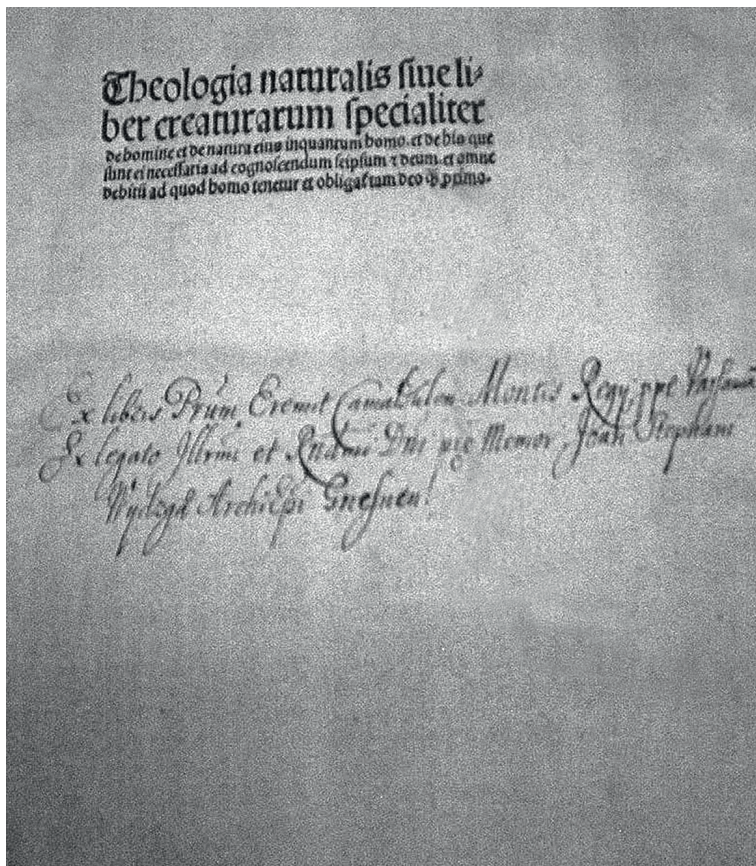 Theologia naturalis siue li⸗
ber creaturarum specialiter
de homine et de natura eius inquantum homo. et de his que
sunt ei necessaria ad cognoscendum seipsum ⁊ deum. et omne
debitū ad quod homo tenetur et obligatur tam deo ꝙ primo.
Ex libris Prum Eremit Camaldulen Montis Regÿ ppe Varsaviā
Ex legato Illrmi et Rndmi Dni pie Memor: Joan Stephani
Wydzga Archiepi Gnesnen!